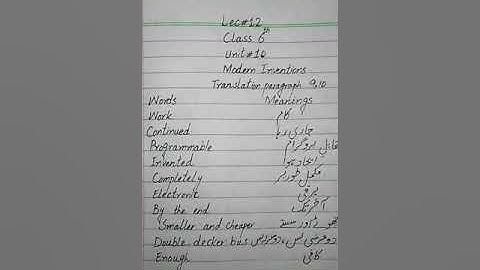 Lec#12
Class 6th
Unit#10
Modern Inventions
Translation paragraph 9,10
Words Meanings
Work کام
Continued جاری رہا
Programmable قابل پروگرام
Invented ایجاد ہوا
Completely مکمل طور پر
Electronic برقی
By the end آخر تک
Smaller and cheaper
Double decker bus دو منزلہ بس
Enough کافی